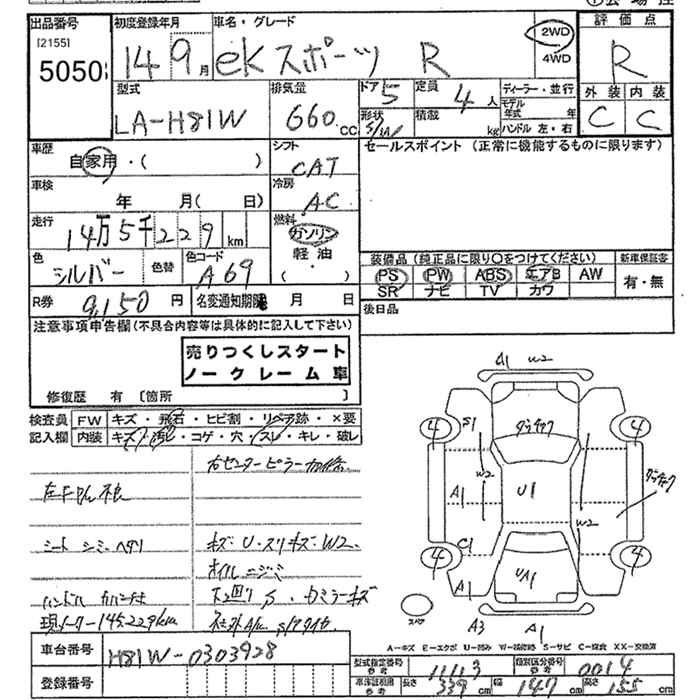 出品番号 初度登録年月 車名・グレード 評価点
[2155]
5050 14 9月 eKスポーツ R 2WD 4WD R
型式 排気量 ドア 5 定員 4人 ディーラー・並行 外装 内装
LA-H81W 660 CC 形状 S/W 積載 kg モデル年式 年 C C
ハンドル 左・右
車歴 自家用・( ) シフト CAT セールスポイント (正常に機能するものに限ります)
車検 年 月( 日) 冷房 AC
走行 14万5千229km 燃料 ガソリン 軽油・( )
色 シルバー 色替 色コード A69
装備品 (純正品に限り〇をつけてください) 新車保証書
PS PW ABS エアB AW 有・無
SR ナビ TV カワ
R券 9,150円 名変通知期限 月 日 後日品
注意事項申告欄 (不具合内容等は具体的に記入して下さい)
売りつくしスタート
ノークレーム車
修復歴 有 [箇所 ]
検査員 FW キズ・飛石・ヒビ割・リペア跡・×要
記入欄 内装 キズ・汚レ・コゲ・穴・スレ・キレ・破レ
右センターピラー
シートシミ・ヘタリ キズ・U・スリキズ・W2
オイルニジミ
ハンドル 下回りS・
現メーター145,229km
A1 W2
S1 4 4
W2
A1 U1 W2
C1 4 4
A1 UA1
スペア A3 A1
A=キズ E=エクボ U=凹み W=補修跡 S=サビ C=腐食 XX=交換済
車台番号 H81W-0303928
登録番号
型式指定番号 参考 11113 類別区分番号 参考 0014
車体証明書 参考 長さ 339cm 幅 147cm 高さ 155cm